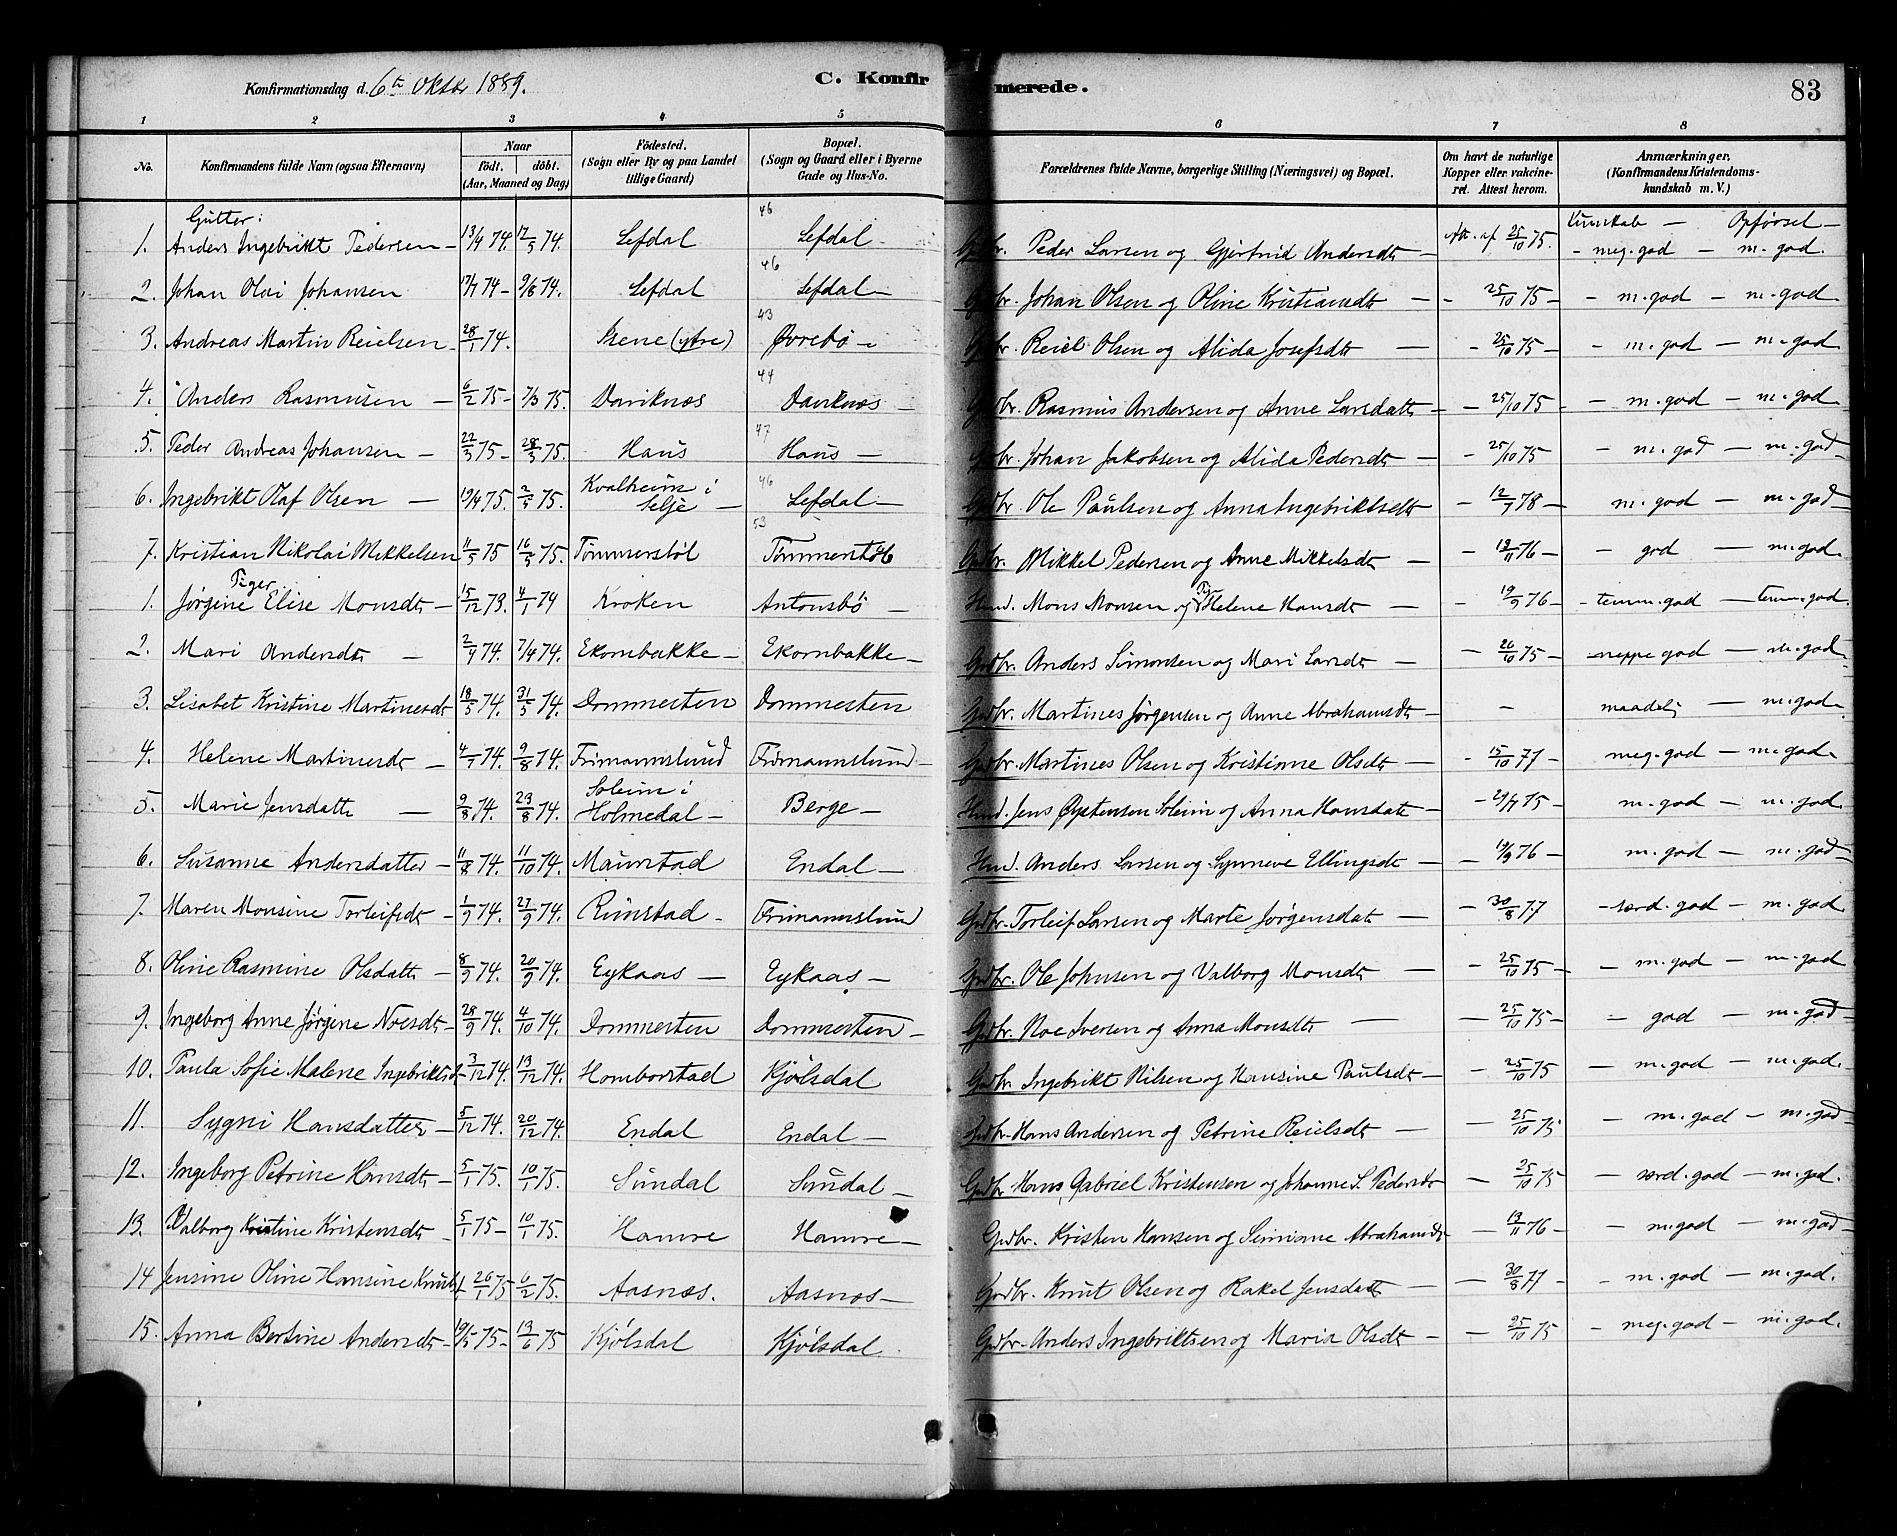 Konfirmationsdag d. 6te Oktbr 1889.
C. Konfirmerede.
83
1 2 3 4 5 6 7 8
No. Konfirmandens fulde Navn (ogsaa Efternavn) Naar födt. döbt. (Aar, Maaned og Dag) Födested. (Sogn eller By og paa Landet tillige Gaard) Bopæl. (Sogn og Gaard eller i Byerne Gade og Hus-No. Forældrenes fulde Navne, borgerlige Stilling (Næringsvei) og Bopæl. Om havt de naturlige Kopper eller vakcineret. Attest herom. Anmærkninger. (Konfirmandens Kristendomskundskab m. V.)
Gutter: 46 Kunskab — Opførsel —
1. Anders Ingebrikt Pedersen 13/4 74. 17/5 74. Lefdal Lefdal Gbr. Peder Larsen og Gjertrud Andersdtr — Att. af 25/10 75. - meg. god — m. god.
46
2. Johan Olai Johansen 17/7 74 - 9/8 74. Lefdal Lefdal Gdbr. Johan Olsen og Oline Kristiansdtr — 25/10 75 — m. god — m. god
43
3. Andreas Martin Reielsen 28/1 74. Isene (ytre) Øvrebø Gdbr. Reiel Olsen og Alida Josefsdtr — 25/10 75 — m. god — m. god
44
4. Anders Rasmusen — 6/2 75 - 7/3 75. Daviknæs Daviknæs Gdbr. Rasmus Andersen og Anne Larsdattr — 25/10 75 — m. god — m. god
47
5. Peder Andreas Johansen — 22/3 75 - 28/3 75. Haus Haus — Gdbr. Johan Jakobsen og Alida Pedersdtr — 25/10 75 — m. god — m. god
46
6. Ingebrikt Olaf Olsen — 19/4 75. 2/5 75. Kvalheim i Selje — Lefdal — Gdbr. Ole Paulsen og Anna Ingebriktsdtr — 12/7 78 — m. god — m. god
53
7. Kristian Nikolai Mikkelsen 11/5 75 16/5 75. Tömmerstöl Tömmerstöl Gdbr. Mikkel Pedersen og Anne Mikkelsdtr — 19/11 76 — god — m. god.
Piger
1. Jørgine Elise Monsdtr — 15/12 73. 4/1 74 Kroken Antonsbö — Hmd. Mons Monsen og Helene Hansdtr — 19/9 76 — temm. god — temm. god.
2. Mari Andersdtr — 2/4 74. 7/4 74. Ekornbakke — Ekornbakke — Gdbr. Anders Simonsen og Mari Larsdtr — 26/10 75 — neppe god — m. god
3. Lisabet Kristine Martinesdtr 18/5 74. 31/5 74. Dommesten Dommesten Gdbr. Martines Jørgensen og Anne Abrahamsdtr — - maadelig — m. god
4. Helene Martinesdtr — 4/7 74. 9/8 74. Frimannslund Frimannslund — Gdbr. Martines Olsen og Kristianne Olsdtr — 15/10 77 — meg. god — m. god
5. Marie Jensdattr — 9/8 74. 23/8 74. Soleim i Holmedal — Berge — Hmd. Jens Øystensen Soleim og Anna Hansdattr — 29/7 75 — m. god — m. god.
6. Susanne Andersdatter — 11/8 74. 11/10 74. Maurstad Endal — Hmd. Anders Larsen og Synneve Ellingsdtr — 19/9 76 — m. god — m. god
7. Maren Monsine Torleifsdtr — 1/9 74. 27/9 74. Rimstad — Frimannslund Gdbr. Torleif Larsen og Marte Jørgensdatr — 30/8 77 — særd. god — m. god
8. Oline Rasmine Olsdattr — 8/9 74. 20/9 74. Eykaas — Eykaas — Gdbr. Ole Johnsen og Valborg Monsdtr — 25/10 75 — m. god — m. god
9. Ingeborg Anne Jørgine Noesdtr — 28/9 74. 4/10 74. Dommesten Dommesten — Gdbr. Noe Iversen og Anna Monsdtr — 25/10 75 — god — m. god
10. Paula Sofie Malene Ingebriktsd — 3/12 74. 13/12 74. Homborstad Kjölsdal Gdbr Ingebrikt Nilsen og Hansine Paulsdtr — 25/10 75 — m. god — m. god.
11. Sygni Hansdatter — 5/12 74. 20/12 74. Endal Endal — Gdbr. Hans Andersen og Petrine Reielsdtr — 25/10 75 — m. god — m. god
12. Ingeborg Petrine Hansdtr — 5/1 75. 10/1 75. Sundal Sundal — Gdbr Hans Gabriel Kristensen og Johanne S. Pedersdtr — 25/10 75 — særd. god — m. god.
13. Valborg Kristine Kristensdtr — 5/1 75 - 10/1 75. Hamre Hamre — Gdbr. Kristen Hansen og Simine Abrahamsdtr — 19/11 76 — m. god — m. god
14 Jensine Oline Hansine Knutsd 26/1 75 6/2 75. Aasnæs. Aasnæs — Gdbr. Knut Olsen og Rakel Jensdattr — 30/8 77 — m. god — m. god.
15. Anna Bertine Andersdtr 19/5 75 - 13/6 75 Kjölsdal Kjölsdal. Gdbr. Anders Ingebriktsen og Maria Olsdtr — 25/10 75 — meg. god — m. god.